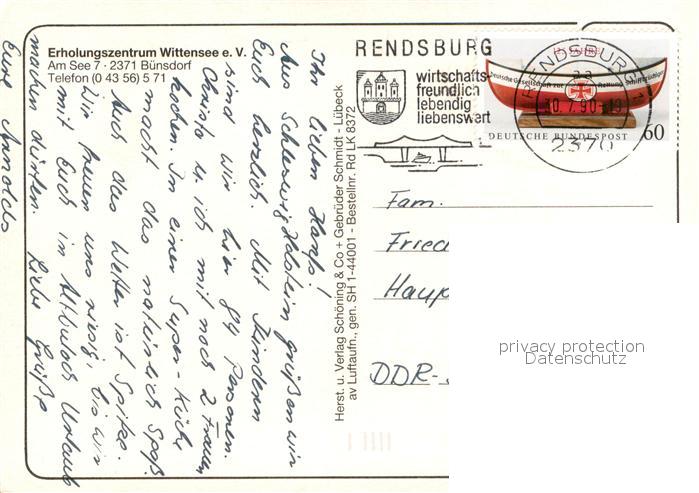 Erholungszentrum Wittensee e. V.
Am See 7 · 2371 Bünsdorf
Telefon (0 43 56) 5 71
Ihr lieben Hanfs!
Aus Schleswig Holstein grüßen wir
Euch herzlich. Mit Kindern
sind wir hier 84 Personen.
Christa u. ich mit noch 2 Frauen
kochen. In einer Super-Küche
macht das natürlich Spaß.
Auch das Wetter ist Spitze.
Wir freuen uns riesig, bis wir
mit Euch in Altbulach Urlaub
machen dürfen. Liebe Grüße
Eure Arnolds
Herst. u. Verlag Schöning & Co + Gebrüder Schmidt - Lübeck
av Luftaufn., gen. SH 1-44001 - Bestellnr. Rd LK 8372
RENDSBURG
wirtschafts-
freundlich
lebendig
liebenswert
RENDSBURG 1
aa
10.7.90-19
2370
125 JAHRE
Deutsche Gesellschaft zur Rettung Schiffbrüchiger
DEUTSCHE BUNDESPOST
60
Fam.
Fried
Haup
DDR-
privacy protection
Datenschutz